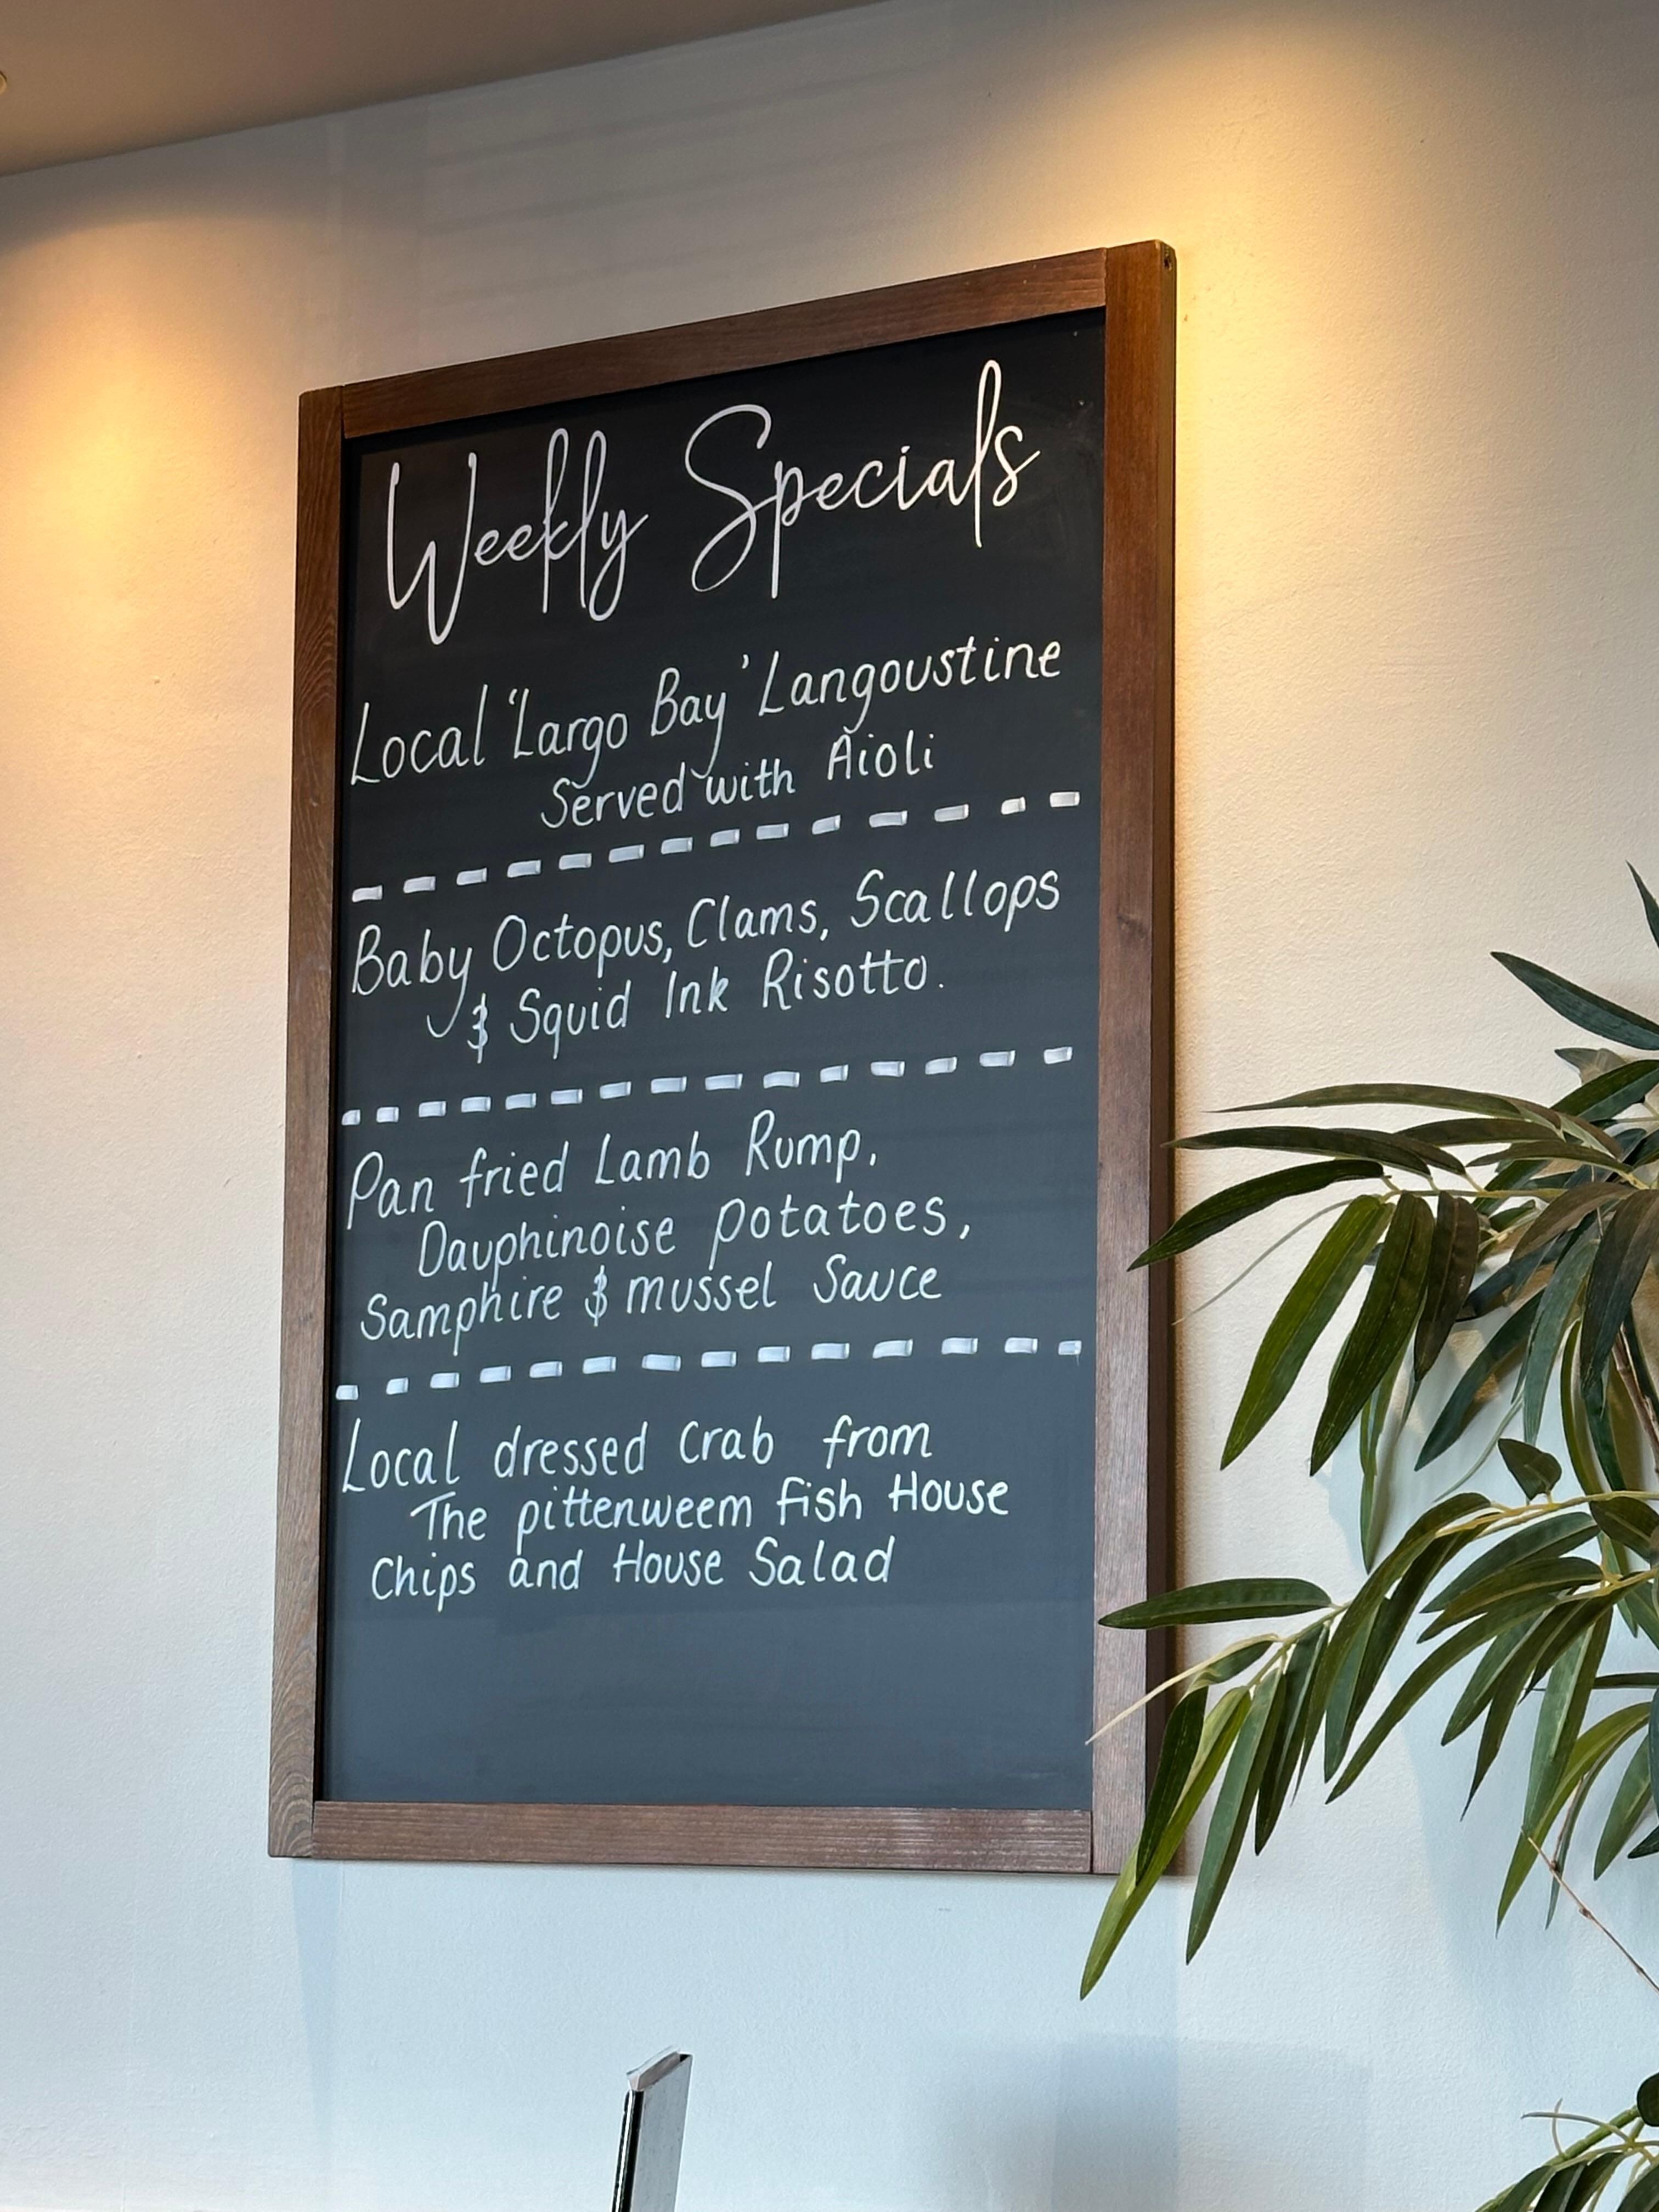 Weekly Specials
Local 'Largo Bay' Langoustine
Served with Aioli
Baby Octopus, Clams, Scallops
& Squid Ink Risotto.
Pan fried Lamb Rump,
Dauphinoise potatoes,
Samphire & mussel Sauce
Local dressed Crab from
The pittenweem fish House
Chips and House Salad